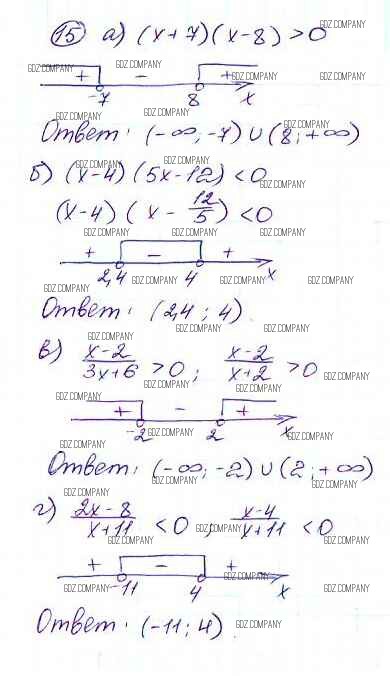 15 а) (x+7)(x-8)>0
+ - +
-7 8 x
Ответ: (-∞; -7) ∪ (8; +∞)
б) (x-4)(5x-12)<0
(x-4)(x - 12/5)<0
+ - +
2,4 4 x
Ответ: (2,4; 4)
в) x-2/3x+6 >0; x-2/x+2 >0
+ - +
-2 2 x
Ответ: (-∞; -2) ∪ (2; +∞)
г) 2x-8/x+11 <0; x-4/x+11 <0
+ - +
-11 4 x
Ответ: (-11; 4)
GDZ.COMPANY